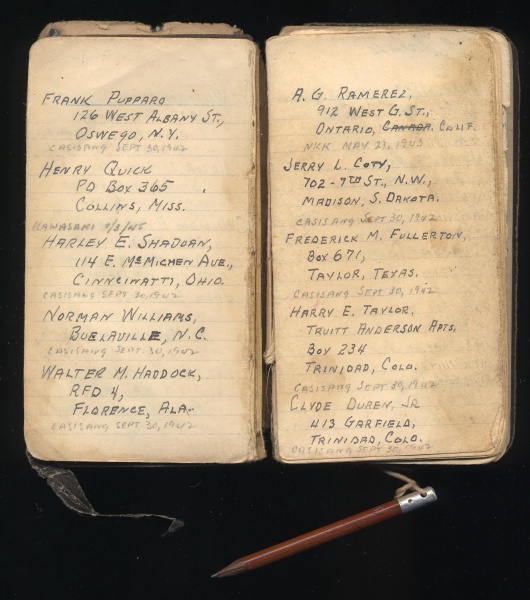 FRANK PUPPARO
126 WEST ALBANY ST.,
OSWEGO, N.Y.
CASISANG SEPT 30, 1942
HENRY QUICK
PO BOX 365
COLLINS, MISS.
KAWASAKI 9/3/45
HARLEY E. SHADOAN,
114 E. McMICHEN AVE.,
CINNCINATTI, OHIO.
CASISANG SEPT 30, 1942
NORMAN WILLIAMS,
BUELAVILLE, N.C.
CASISANG SEPT. 30, 1942
WALTER M. HADDOCK,
RFD 4,
FLORENCE, ALA.
CASISANG SEPT 30, 1942
A. G. RAMEREZ,
912 WEST G. ST.,
ONTARIO, CANADA. CALIF.
NKK MAY 21, 1943
JERRY L. COTY,
702 - 7TH ST., N.W.,
MADISON, S. DAKOTA.
CASISANG SEPT 30, 1942
FREDERICK M. FULLERTON,
BOX 671,
TAYLOR, TEXAS.
CASISANG SEPT 30, 1942
HARRY E. TAYLOR,
TRUITT ANDERSON APTS,
BOX 234
TRINIDAD, COLO.
CASISANG SEPT 30, 1942
CLYDE DUREN, JR
413 GARFIELD,
TRINIDAD, COLO.
CASISANG SEPT 30, 1942